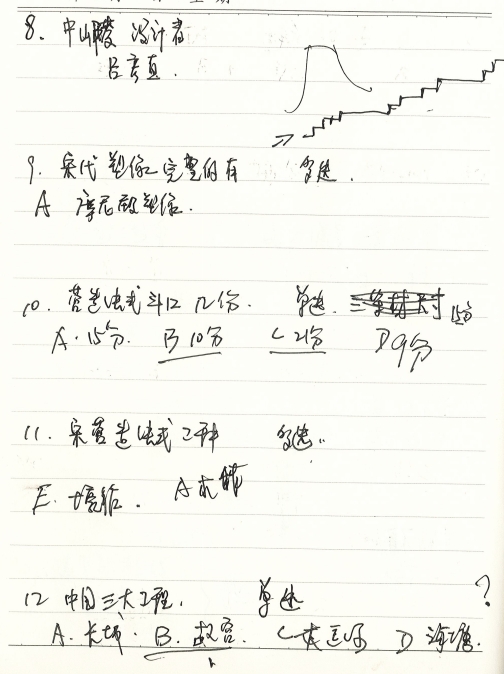 8. 中山陵 设计者
吕彦直.
9. 宋代塑像完整的有 多选.
A 摩尼殿塑像.
10. 营造法式斗口几份. 单选. 15分
A. 15分. B 10分 C 21分 D 9分
11. 宋营造法式工种 多选..
E. 墙作. A 木作
12 中国三大工程. 单选 ?
A. 长城. B. 故宫. C 大运河 D 海塘.